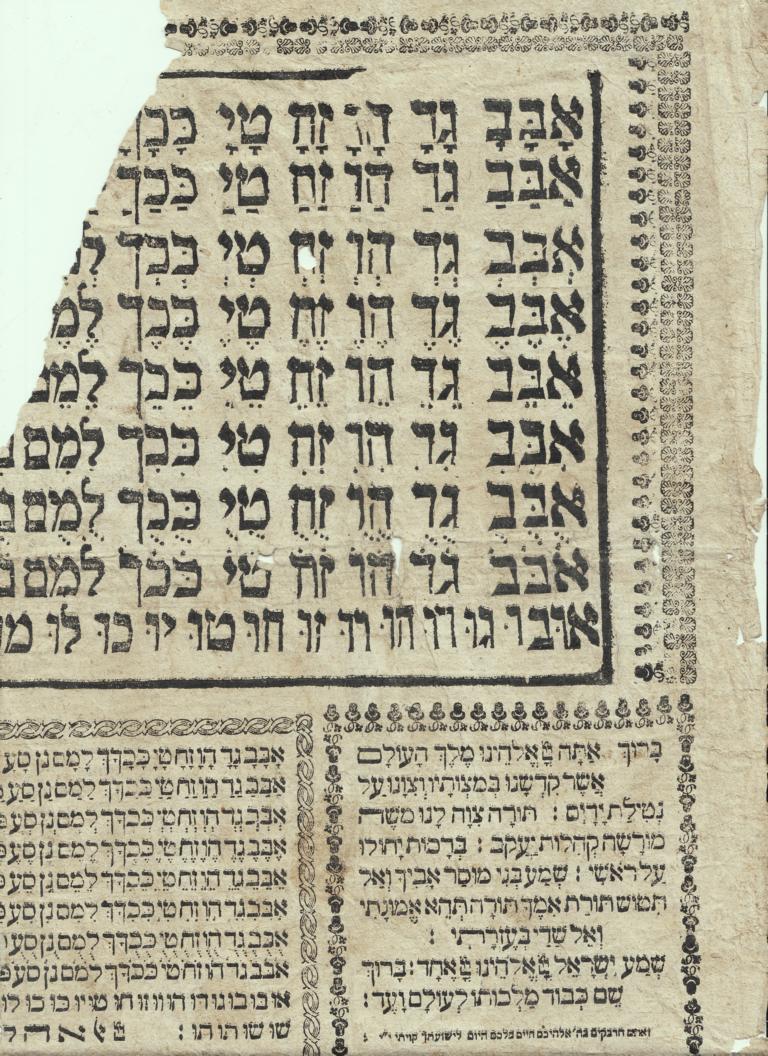 אָבָּבָ גָדָ הָוָ זָחָ טָיָ כָּכָךָ
אַבַּבַ גַדַ הַוַ זַחַ טַיַ כַּכַךַ
אְבְּבְ גְדְ הְוְ זְחְ טְיְ כְּכְךְ לְ
אֶבֶּבֶ גֶדֶ הֶוֶ זֶחֶ טֶיֶ כֶּכֶךֶ לֶמֶ
אֵבֵּבֵ גֵדֵ הֵוֵ זֵחֵ טֵיֵ כֵּכֵךֵ לֵמֵם
אִבִּבִ גִדִ הִוִ זִחִ טִיִ כִּכִךִ לִמִם
אֻבֻּבֻ גֻדֻ הֻוֻ זֻחֻ טֻיֻ כֻּכֻךֻ לֻמֻם
אֹבֹּבֹ גֹדֹ הֹוֹ זֹחֹ טֹיֹ כֹּכֹךֹ לֹמֹם
אוּבוּ גוּ דוּ הוּ וּוּ זוּ חוּ טוּ יוּ כוּ לוּ
בָּרוּךְ אַתָּה אֱלֹהֵינוּ מֶלֶךְ הָעוֹלָם
אֲשֶׁר קִדְּשָׁנוּ בְּמִצְוֹתָיו וְצִוָּנוּ עַל
נְטִילַת יָדָיִם : תּוֹרָה צִוָּה לָנוּ מֹשֶׁה
מוֹרָשָׁה קְהִלּוֹת יַעֲקֹב : בְּרָכוֹת יָחוּלוּ
עַל רֹאשִׁי : שְׁמַע בְּנִי מוּסַר אָבִיךָ וְאַל
תִּטּוֹשׁ תּוֹרַת אִמֶּךָ תּוֹרָה תְּהֵא אֱמוּנָתִי
וְאֵל שַׁדַּי בְּעֶזְרָתִי :
שְׁמַע יִשְׂרָאֵל אֱלֹהֵינוּ אֶחָד : בָּרוּךְ
שֵׁם כְּבוֹד מַלְכוּתוֹ לְעוֹלָם וָעֶד :
ואתם הדבקים בה' אלהיכם חיים כלכם היום לישועתך קויתי י"י :
אָבָּבָגָדָ הָוָזָחָטָיָ כָּכָךָ לָמָםָנָןָ סָעָ
אַבַּבַגַדַ הַוַזַחַטַיַ כַּכַךַ לַמַםַנַןַ סַעַ
אְבְּבְגְדְ הְוְזְחְטְיְ כְּכְךְ לְמְםְנְןְ סְעְ
אֶבֶּבֶגֶדֶ הֶוֶזֶחֶטֶיֶ כֶּכֶךֶ לֶמֶםֶנֶןֶ סֶעֶ
אֵבֵּבֵגֵדֵ הֵוֵזֵחֵטֵיֵ כֵּכֵךֵ לֵמֵםֵנֵןֵ סֵעֵ
אִבִּבִגִדִ הִוִזִחִטִיִ כִּכִךִ לִמִםִנִןִ סִעִ
אֻבֻּבֻגֻדֻ הֻוֻזֻחֻטֻיֻ כֻּכֻךֻ לֻמֻםֻנֻןֻ סֻעֻ
אֹבֹּבֹגֹדֹ הֹוֹזֹחֹטֹיֹ כֹּכֹךֹ לֹמֹםֹנֹןֹ סֹעֹ
שו שו תו תו :